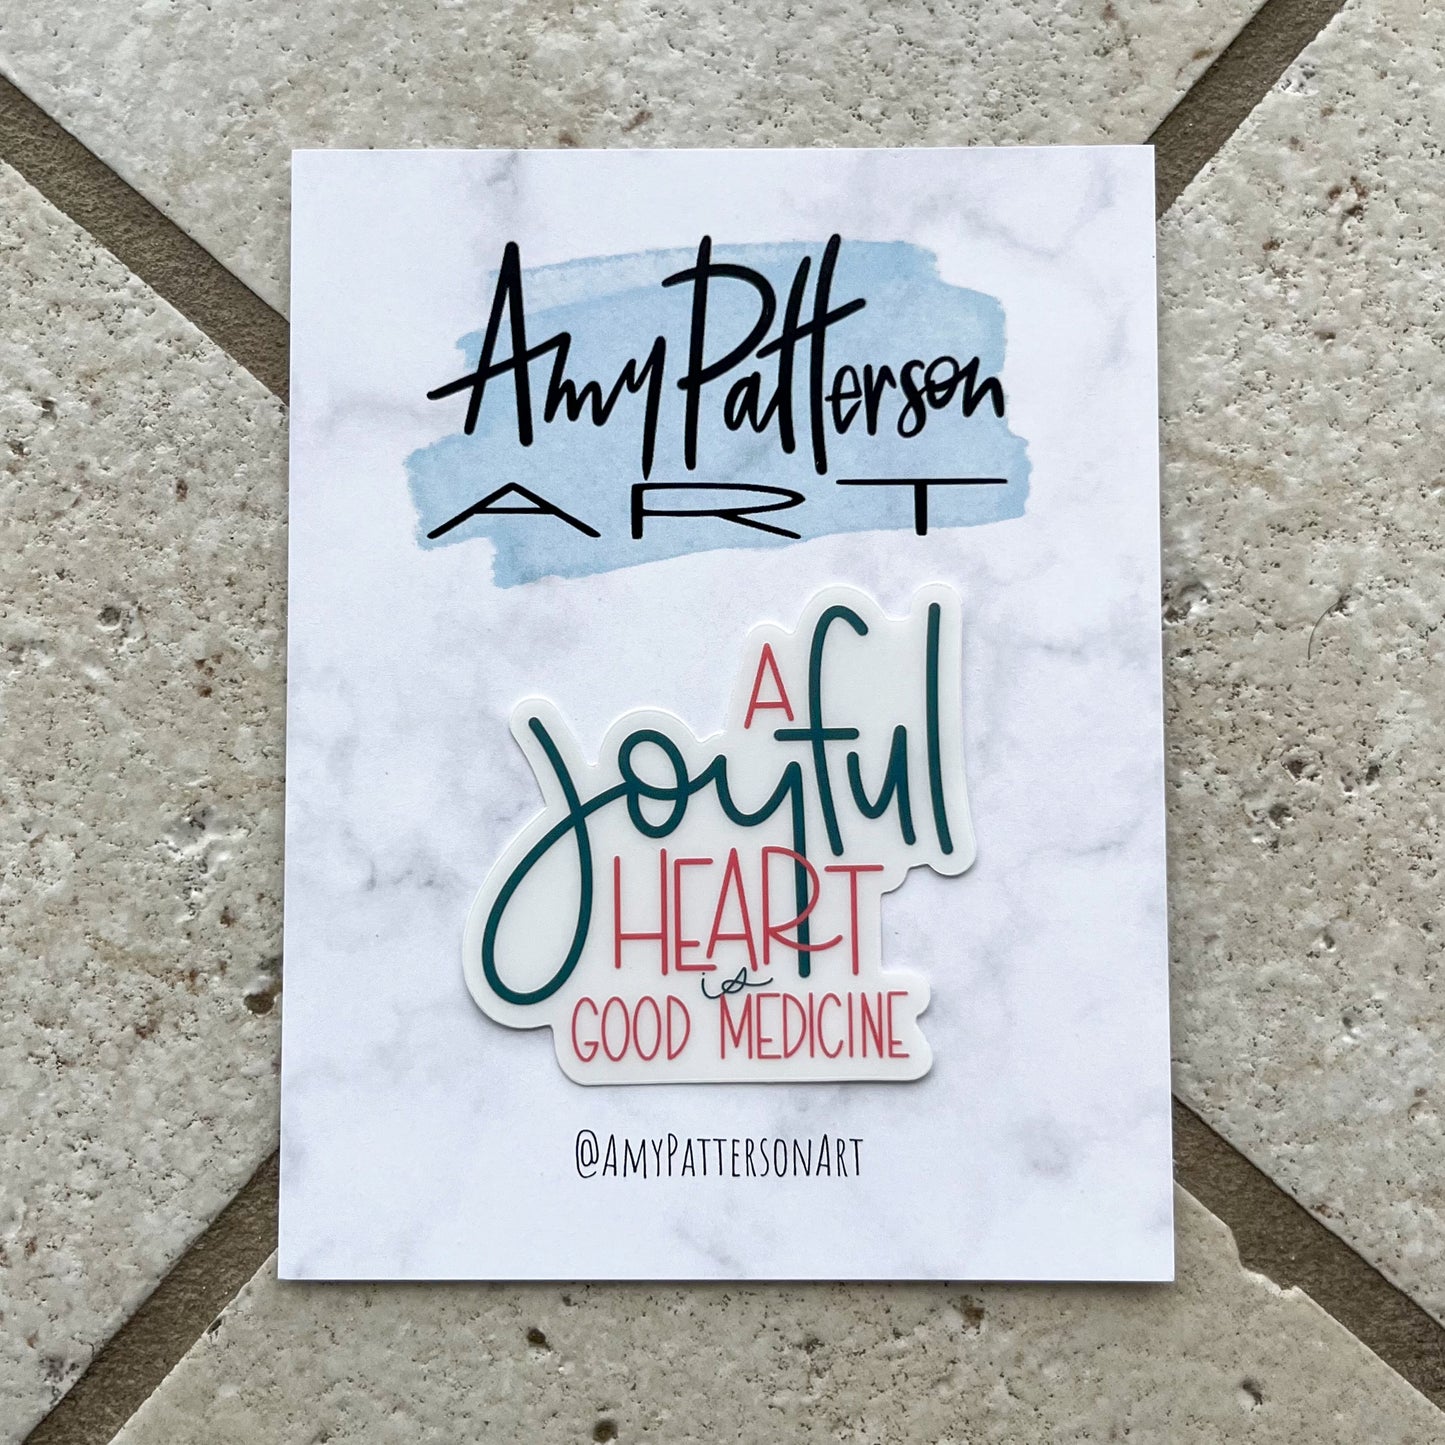 Amy Patterson
ART
A
joyful
HEART
is
GOOD MEDICINE
@AmyPattersonArt